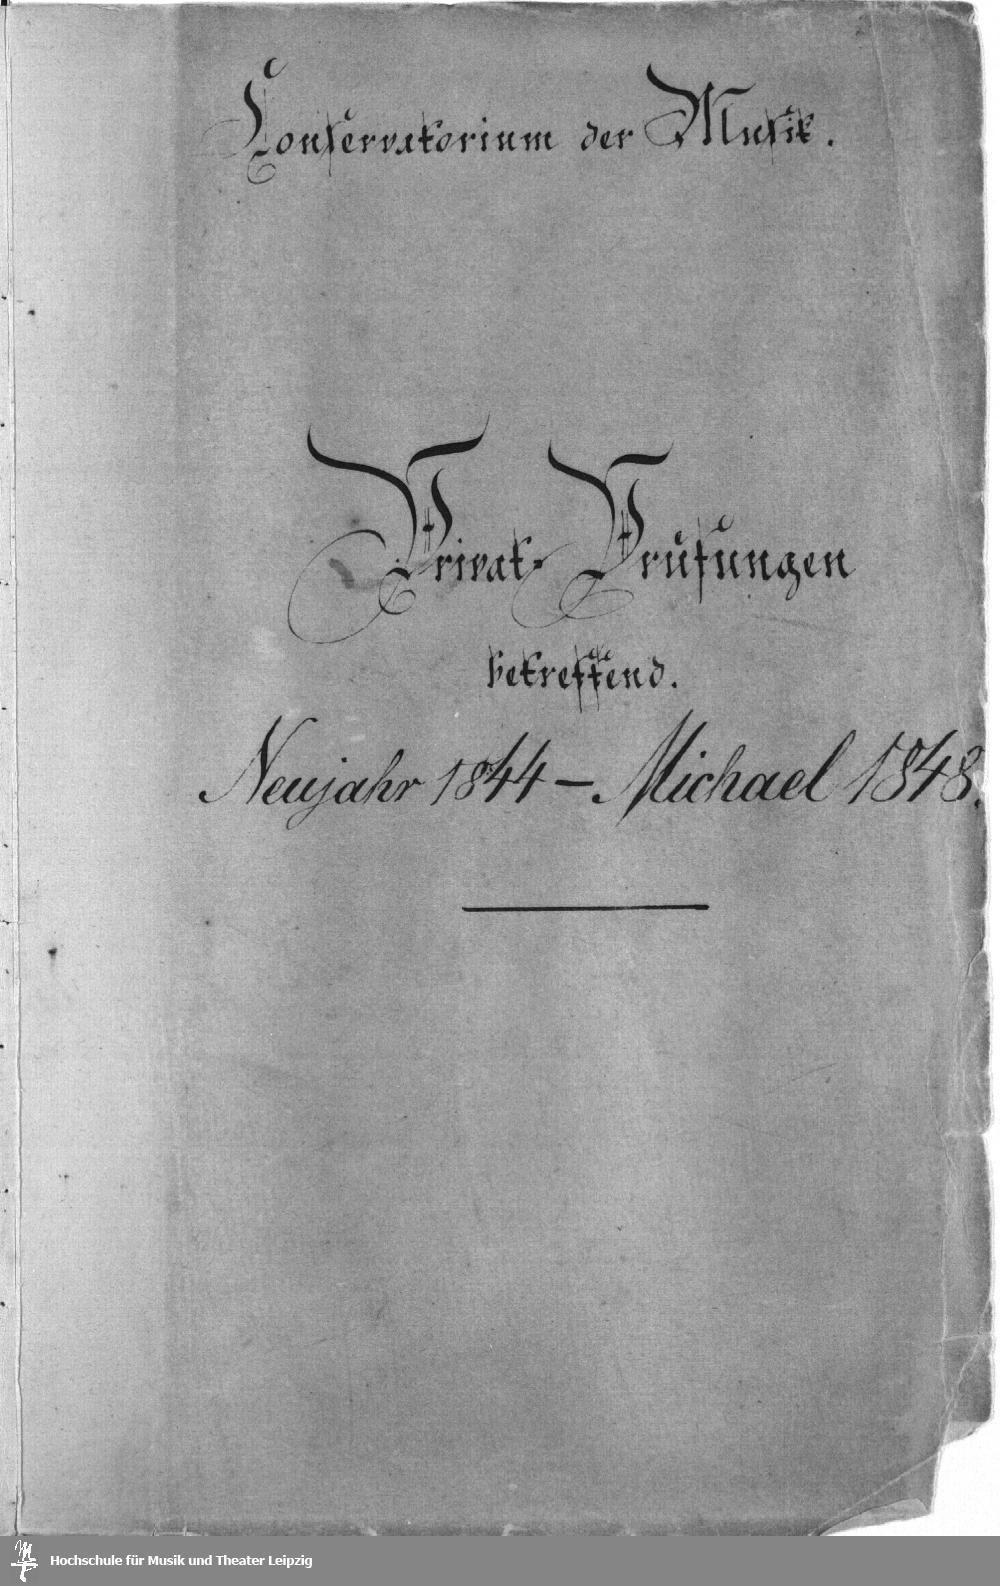 Conservatorium der Musik.
Privat-Prüfungen
betreffend.
Neujahr 1844 – Michael 1848.
Hochschule für Musik und Theater Leipzig